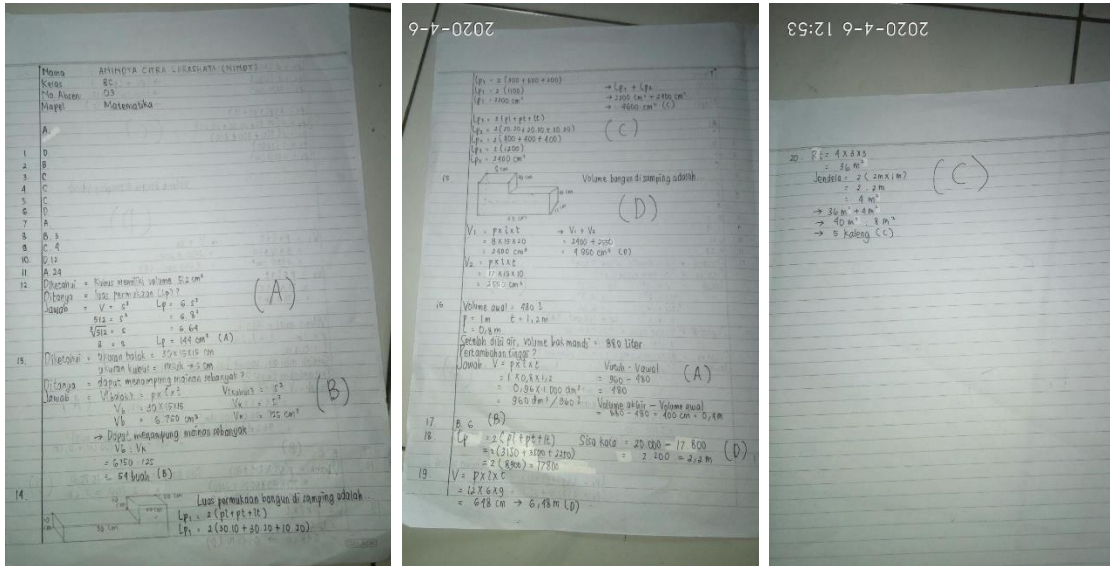 Nama
Kelas 8C
No. Absen 03
Mapel Matematika
A.
1 D
2 B
3 C
4 C
5 C
6 D
7 A
8 B. 3
9 C. 4
10. D. 12
11 A. 24
12. Diketahui = Kubus memiliki volume 512 cm³
Ditanya = luas permukaan (Lp)?
Jawab = V = s³ Lp = 6. s²
512 = s³ = 6. 8²
∛512 = s = 6. 64
8 = s Lp = 144 cm² (A)
(A)
13. Diketahui = ukuran balok = 30x15x15 cm
ukuran kubus = rusuk → 5 cm
Ditanya = dapat menampung mainan sebanyak?
Jawab = V(balok) = pxlxt V(kubus) = s³
Vb = 30x15x15 Vk = 5³
Vb = 6.750 cm³ Vk = 125 cm³
(B)
→ Dapat menampung mainan sebanyak
Vb : Vk
= 6750 : 125
= 54 buah (B)
14. Luas permukaan bangun di samping adalah
Lp₁ = 2(pl+pt+lt)
Lp₁ = 2(30.10 + 30.20 + 10.20)
2020-4-6
Lp₁ = 2(300 + 600 + 200)
Lp₁ = 2(1100)
Lp₁ = 2200 cm²
→ Lp₁ + Lp₂
→ 2200 cm² + 2400 cm²
→ 4600 cm² (C)
Lp₂ = 2(pl+pt+lt)
Lp₂ = 2(20.20 + 20.20 + 20.20)
Lp₂ = 2(400 + 400 + 400)
Lp₂ = 2(1200)
Lp₂ = 2400 cm²
(C)
15 Volume bangun di samping adalah
(D)
V₁ = pxlxt → V₁ + V₂
= 8x15x20 = 2400 + 2550
= 2400 cm³ = 4950 cm³ (D)
V₂ = pxlxt
= 17x15x10
= 2550 cm³
16 Volume awal = 480 l
p = 1m t = 1,2m
l = 0,8m
Setelah diisi air, volume bak mandi = 880 liter
Pertambahan tinggi?
Jawab V = pxlxt
= 1x0,8x1,2
= 0,96x1.000 dm³
= 960 dm³/960 l
- Vawal
= 960 - 480
= 480
Volume akhir - Volume awal
= 880 - 480 = 400 cm = 0,4m
(A)
17 B. 6 (B)
18. Lp = 2(pl+pt+lt) Sisa kaca = 20.000 - 17.800
= 2(3150 + 3500 + 2250) = 2.200 = 2,2 m
= 2(8900) = 17800
(D)
19 V = pxlxt
= 12x6x9
= 648 cm → 6,48m (D)
2020-4-6 12:53
20. = 4x3x3
= 36 m²
Jendela = 2(2mx1m)
= 2. 2m
= 4 m²
→ 36 m² + 4 m²
→ 40 m² : 8 m²
→ 5 kaleng (C)
(C)